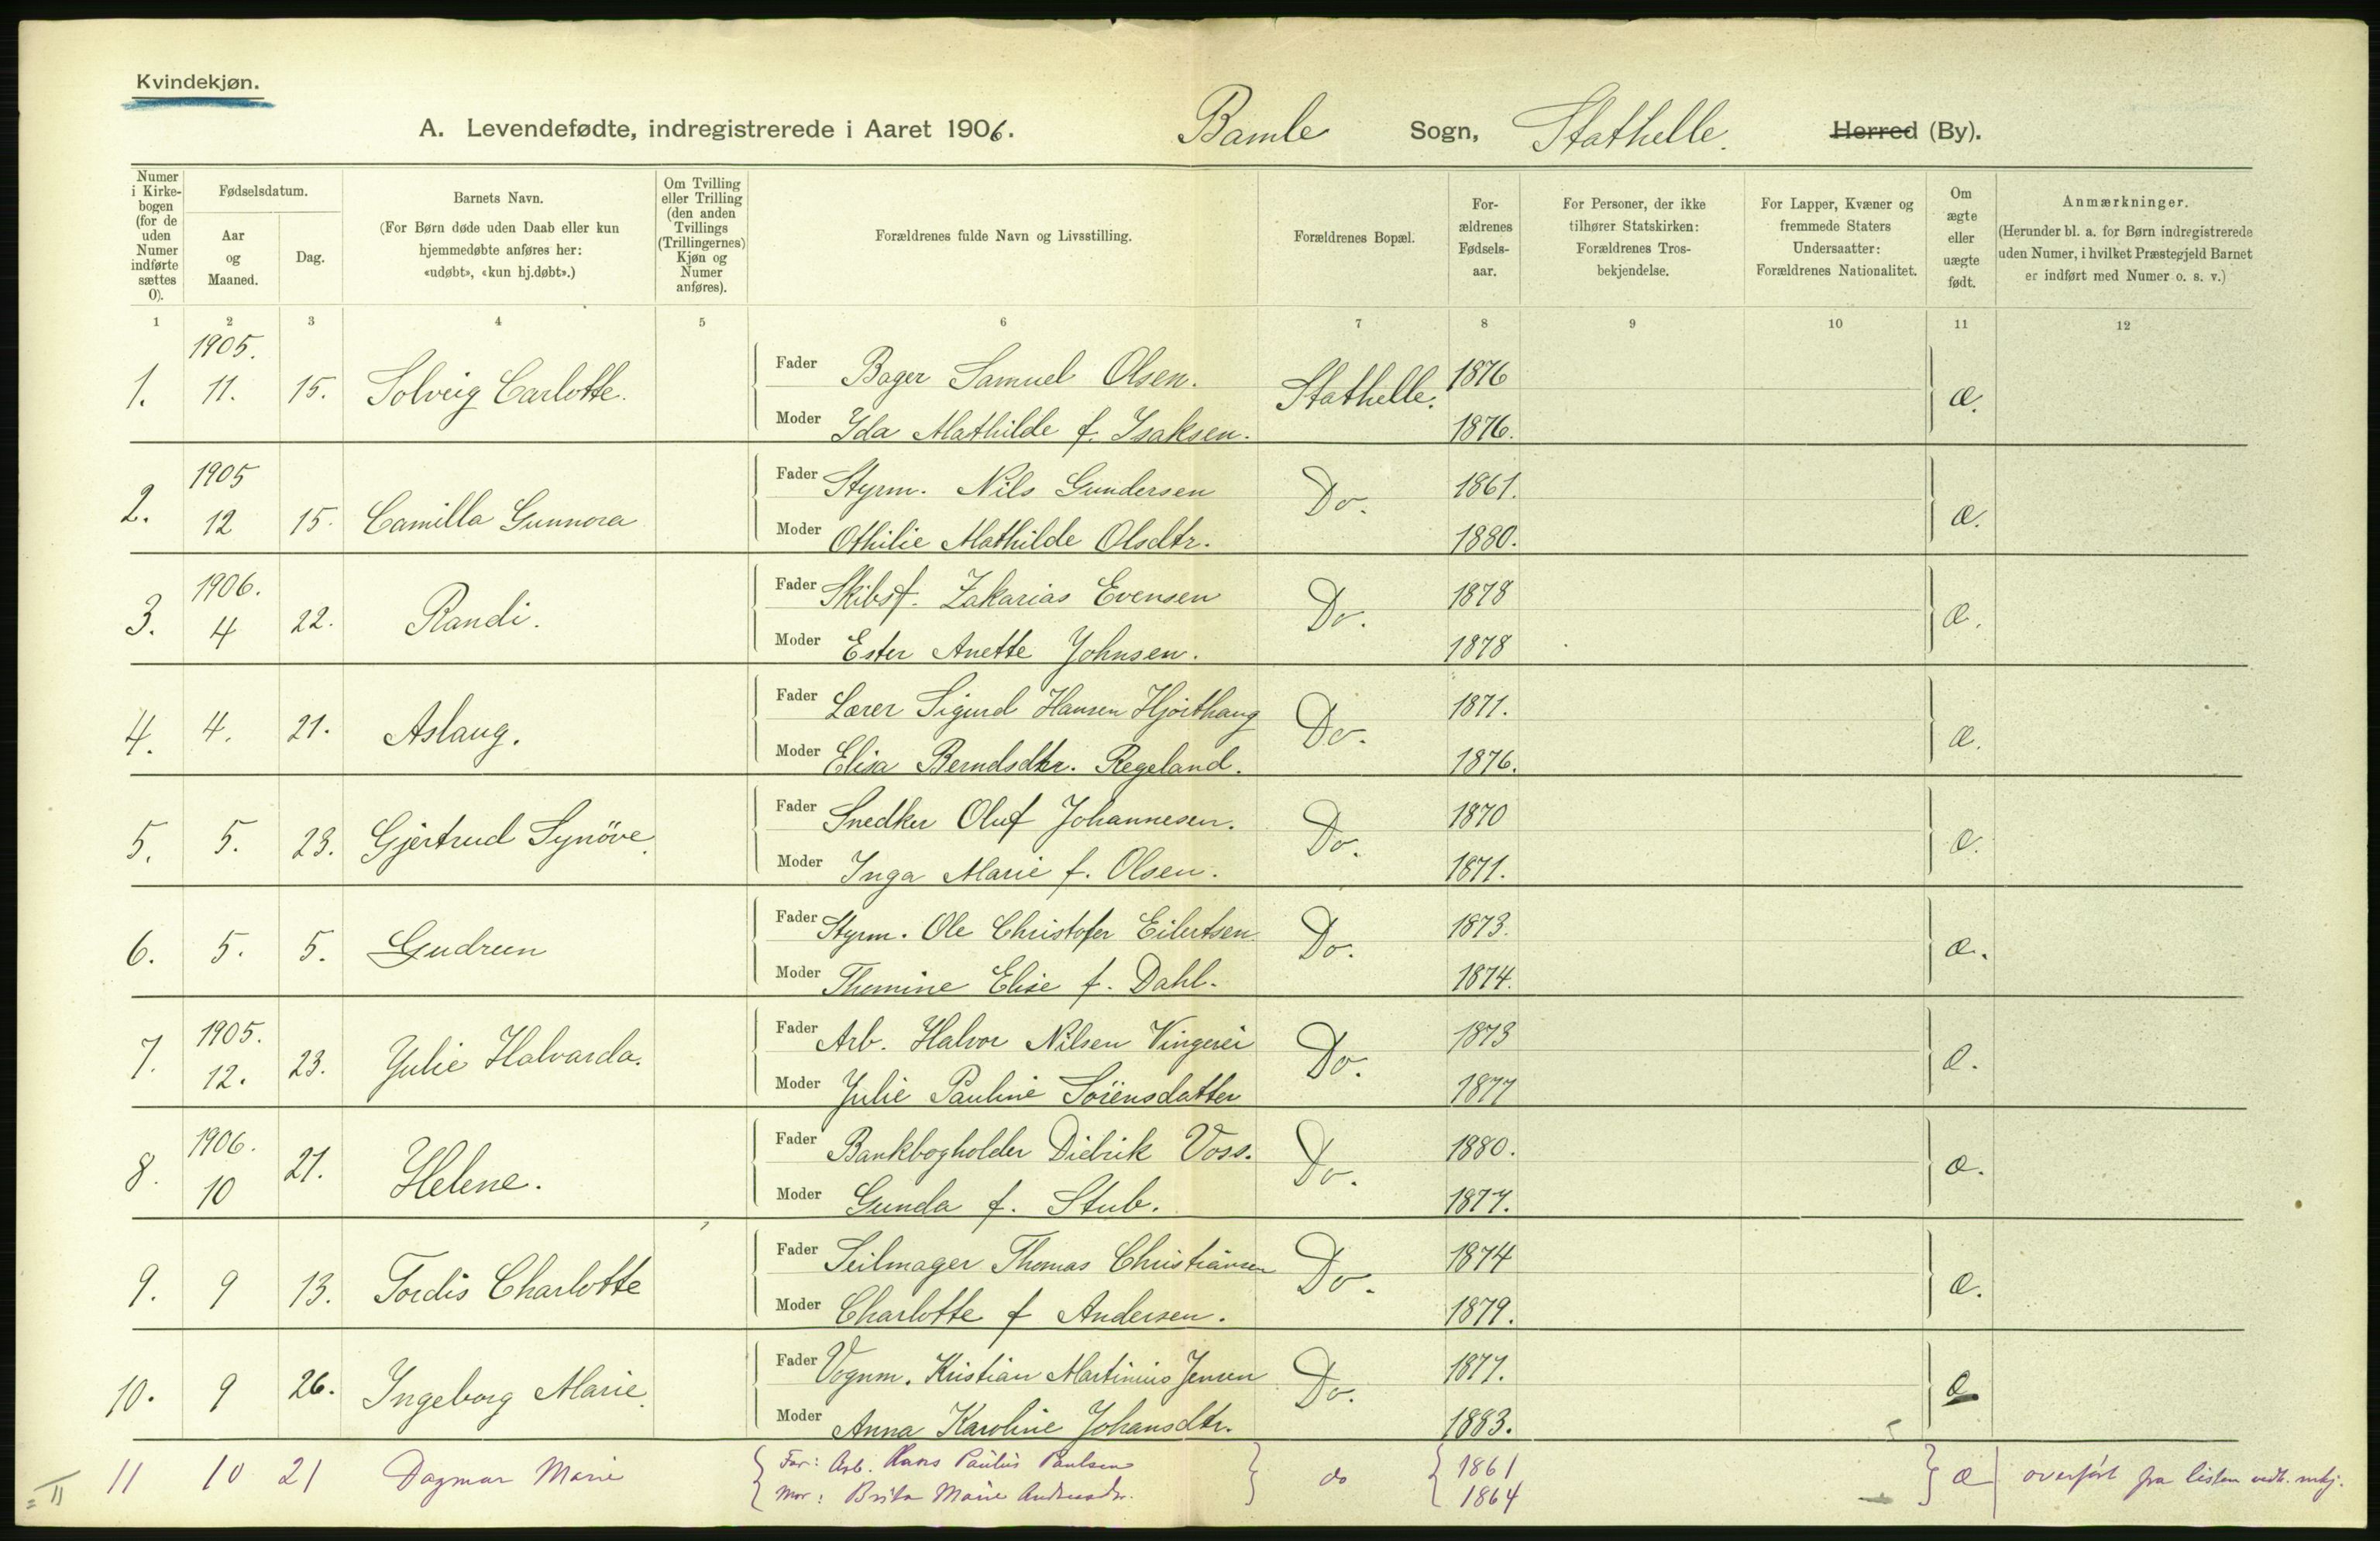 Kvindekjøn.
A. Levendefødte, indregistrerede i Aaret 1906. Bamle Sogn, Stathelle. Herred (By).
Numer i Kirkebogen (for de uden Numer indførte sættes 0).
Fødselsdatum.
Aar og Maaned.
Dag.
Barnets Navn.
(For Børn døde uden Daab eller kun hjemmedøbte anføres her: «udøbt», «kun hj.døbt».)
Om Tvilling eller Trilling (den anden Tvillings (Trillingernes) Kjøn og Numer anføres).
Forældrenes fulde Navn og Livsstilling.
Forældrenes Bopæl.
Forældrenes Fødselsaar.
For Personer, der ikke tilhører Statskirken: Forældrenes Trosbekjendelse.
For Lapper, Kvæner og fremmede Staters Undersaatter: Forældrenes Nationalitet.
Om ægte eller uægte født.
Anmærkninger.
(Herunder bl. a. for Børn indregistrerede uden Numer, i hvilket Præstegjeld Barnet er indført med Numer o. s. v.)
1 2 3 4 5 6 7 8 9 10 11 12
1. 1905. 11. 15. Solveig Carlotte. Fader Bager Samuel Olsen. Stathelle. 1876 æ.
Moder Ida Mathilde f. Isaksen. 1876.
2. 1905 12 15. Camilla Gunnora Fader Styrm. Nils Gundersen Do. 1861. æ.
Moder Othilie Mathilde Olsdtr. 1880.
3. 1906. 4 22. Randi. Fader Skibsf. Zakarias Evensen Do. 1878 æ.
Moder Ester Anette Johnsen. 1878
4. 4. 21. Aslaug. Fader Lærer Sigurd Hansen Hjorthaug Do. 1871. æ.
Moder Elisa Berndsdtr. Regeland. 1876.
5. 5. 23. Gjertrud Synöve. Fader Snedker Oluf Johannesen. Do. 1870 æ.
Moder Inga Marie f. Olsen. 1871.
6. 5. 5. Gudrun Fader Styrm. Ole Christofer Eilertsen Do. 1873. æ.
Moder Thomine Elise f. Dahl. 1874.
7. 1905. 12. 23. Julie Halvarda. Fader Arb. Halvor Nilsen Vingerei Do. 1873 æ.
Moder Julie Pauline Sörensdatter 1877
8. 1906. 10 21. Helene. Fader Bankbogholder Didrik Voss. Do. 1880. æ.
Moder Gunda f. Stub. 1877.
9. 9 13. Tordis Charlotte Fader Seilmager Thomas Christiansen Do. 1874 æ.
Moder Charlotte f Andersen. 1879.
10. 9 26. Ingeborg Marie. Fader Vognm. Kristian Martinius Jensen Do. 1877. æ
Moder Anna Karoline Johansdtr. 1883.
11 10 21 Dagmar Marie Far: Arb. Hans Paulus Paulsen do 1861 æ overført fra listen vedk. mkj.
Mor: Brita Marie Andersdr. 1864
= 11